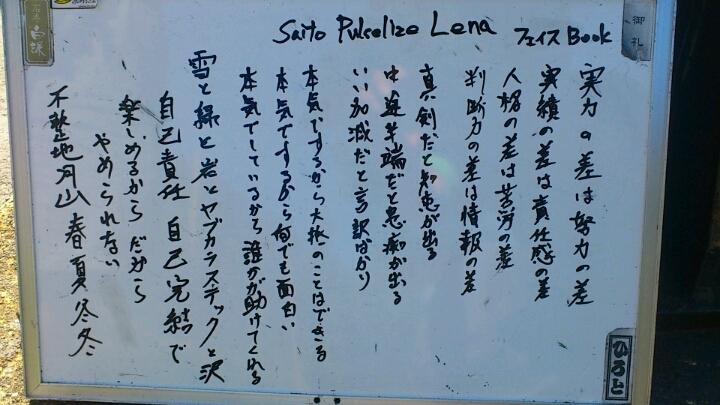 Saito Pulselize Lena フェイスBook
実力の差は努力の差
実績の差は責任感の差
人格の差は苦労の差
判断力の差は情報の差
真剣だと知恵が出る
中途半端だと愚痴が出る
いい加減だと言訳ばかり
本気でするから大抵のことはできる
本気でするから何でも面白い
本気でしているから誰かが助けてくれる
雪と緑と岩とヤブカラステックと沢
自己責任 自己完結で
楽しめるからだから
やめられない
不整地月山春夏冬冬
御札
ひろと